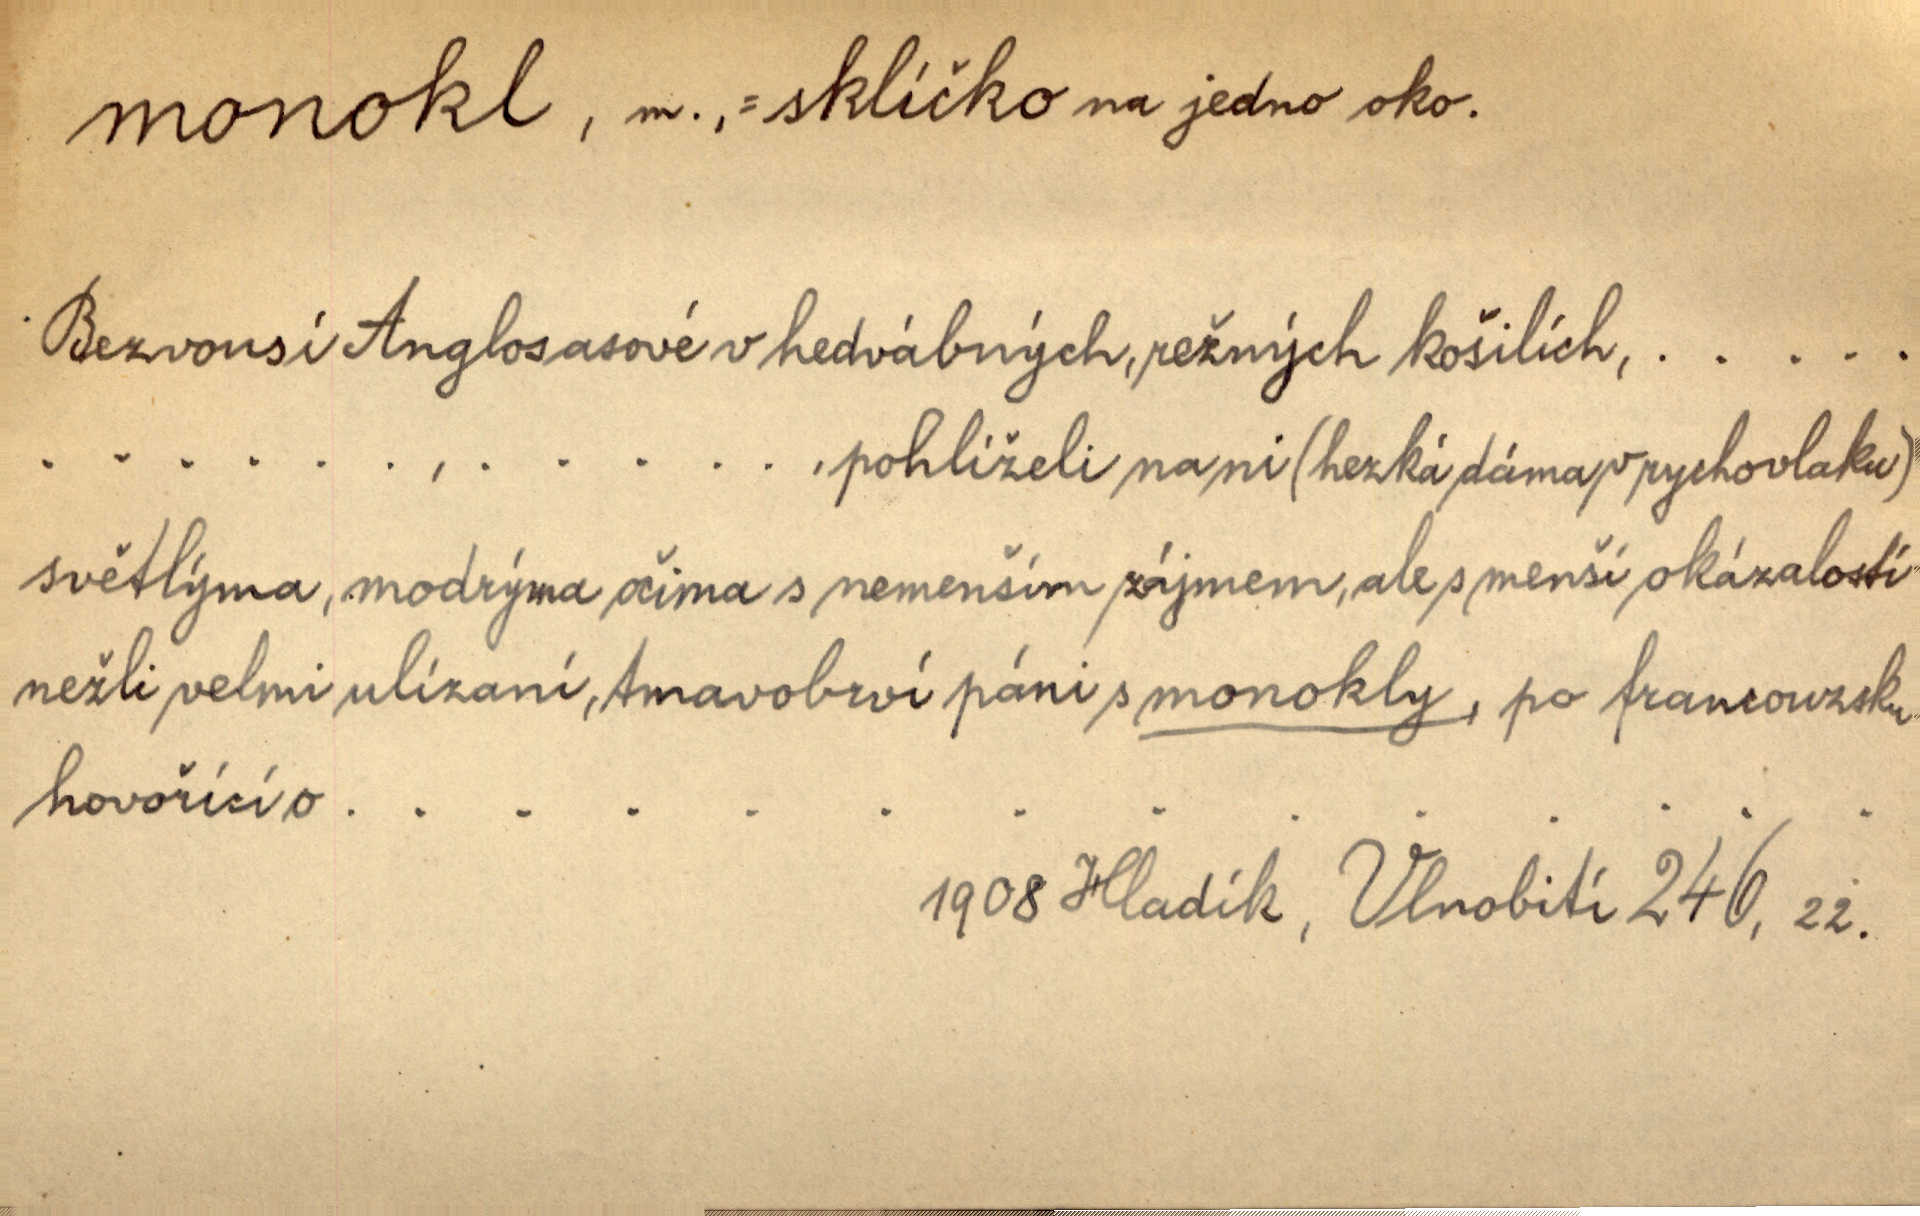 monokl, m., = sklíčko na jedno oko.
Bezvousí Anglosasové v hedvábných, režných košilích, . . . . .
. . . . . . , . . . . . . , pohlíželi na ni (hezká dáma v rychovlaku)
světlýma, modrýma očima s nemenším zájmem, ale s menší okázalostí
nežli velmi ulízaní, tmavobrví páni s monokly, po francouzsku
hovořící o . . . . . . . . . . . . . .
1908 Hladík, Vlnobití 246, 22.